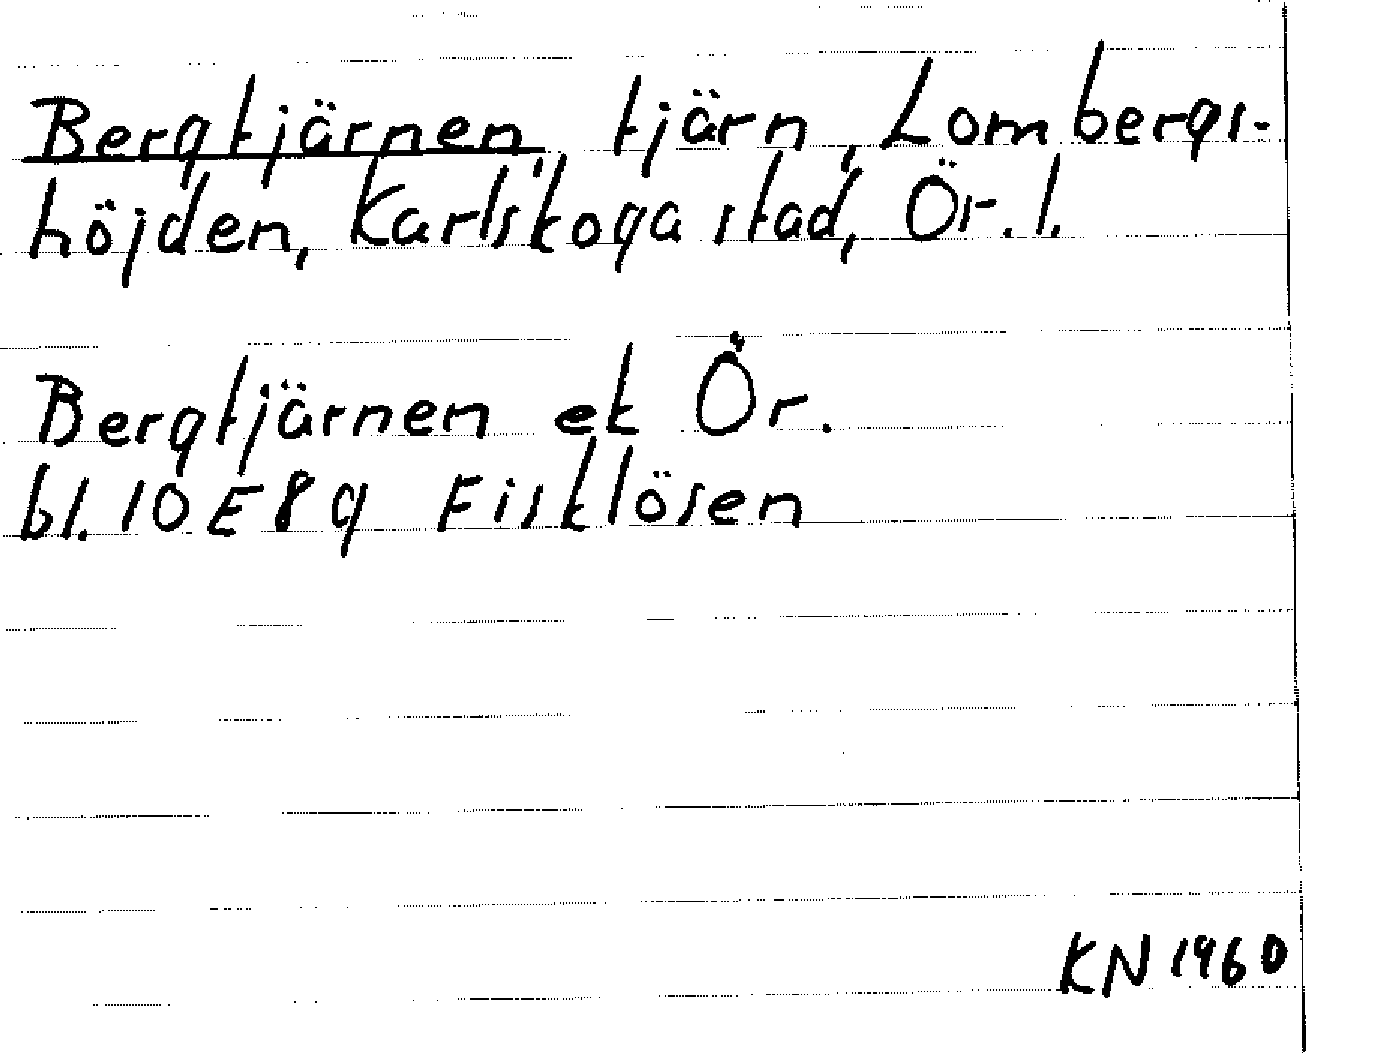 Bergtjärnen, tjärn, Lombergs-
höjden, Karlskoga stad, Ör. l.
Bergtjärnen ek Ör.
bl. 10E8g Fisklösen
KN 1960